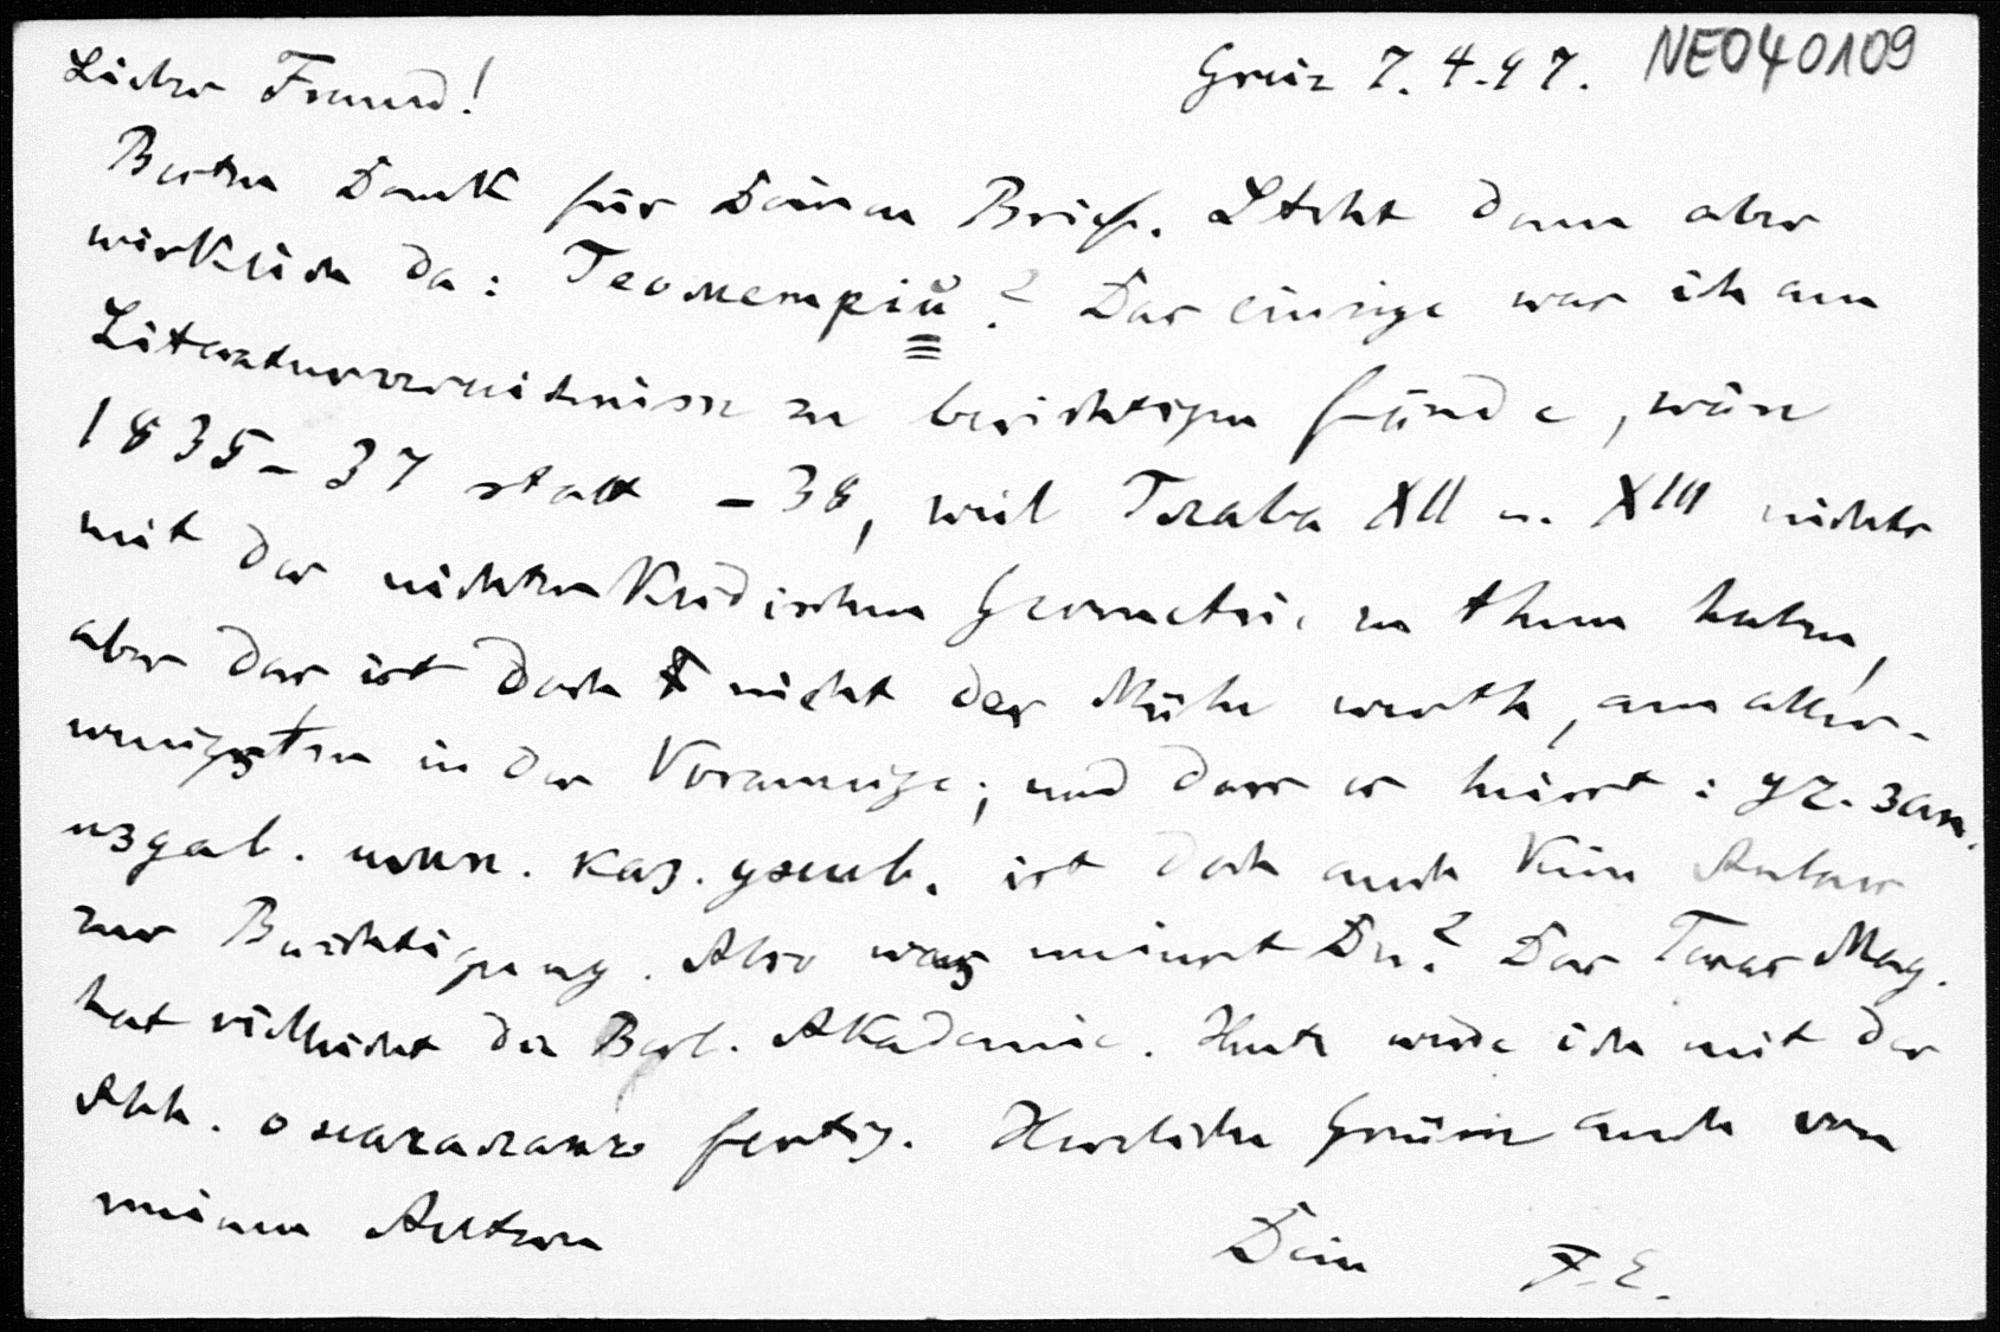 Lieber Freund! Greiz 7.4.97. NEO40109
Besten Dank für Deinen Brief. Steht denn aber
wirklich da: Геометріи̌? Das einzige was ich am
Literaturverzeichnisse zu berichtigen fände, wäre
1835-37 statt -38, weil Tezaba XII u. XIII nichts
mit der nichteuklidischen Geometrie zu thun haben,
aber das ist doch nicht der Mühe werth, am aller-
wenigsten in der Voranzeige; und dass es heisst: уч. зап.
издав. имп. каз. унив. ist doch auch kein Anlass
zur Berichtigung. Also was meinst Du? Das Taxes Mag.
hat vielleicht die Berl. Akademie. Heute werde ich mit der
Abh. о началахъ fertig. Herzliche Grüsse auch von
meinen Eltern
Dein F. E.